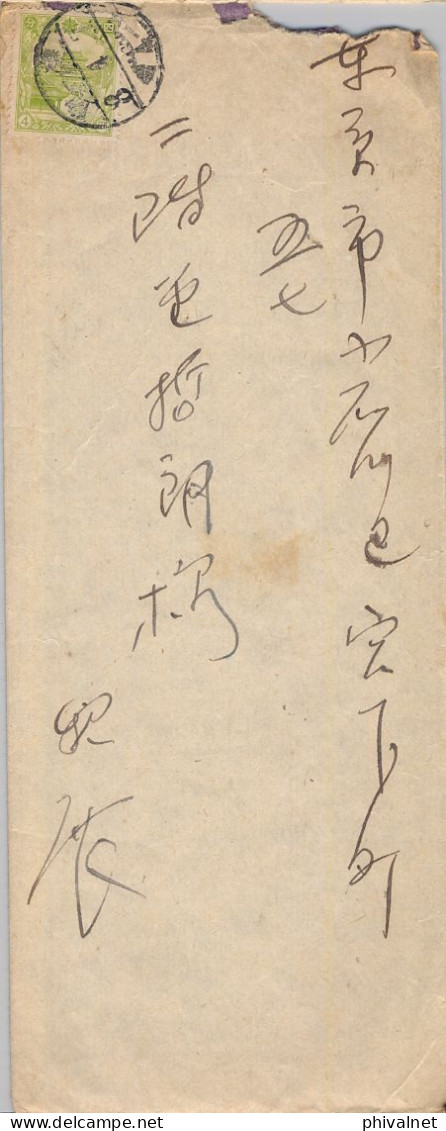 東京市小石川區宮下町
五七
二階堂哲朗様
親展
4
www.delcampe.net
phivalnet